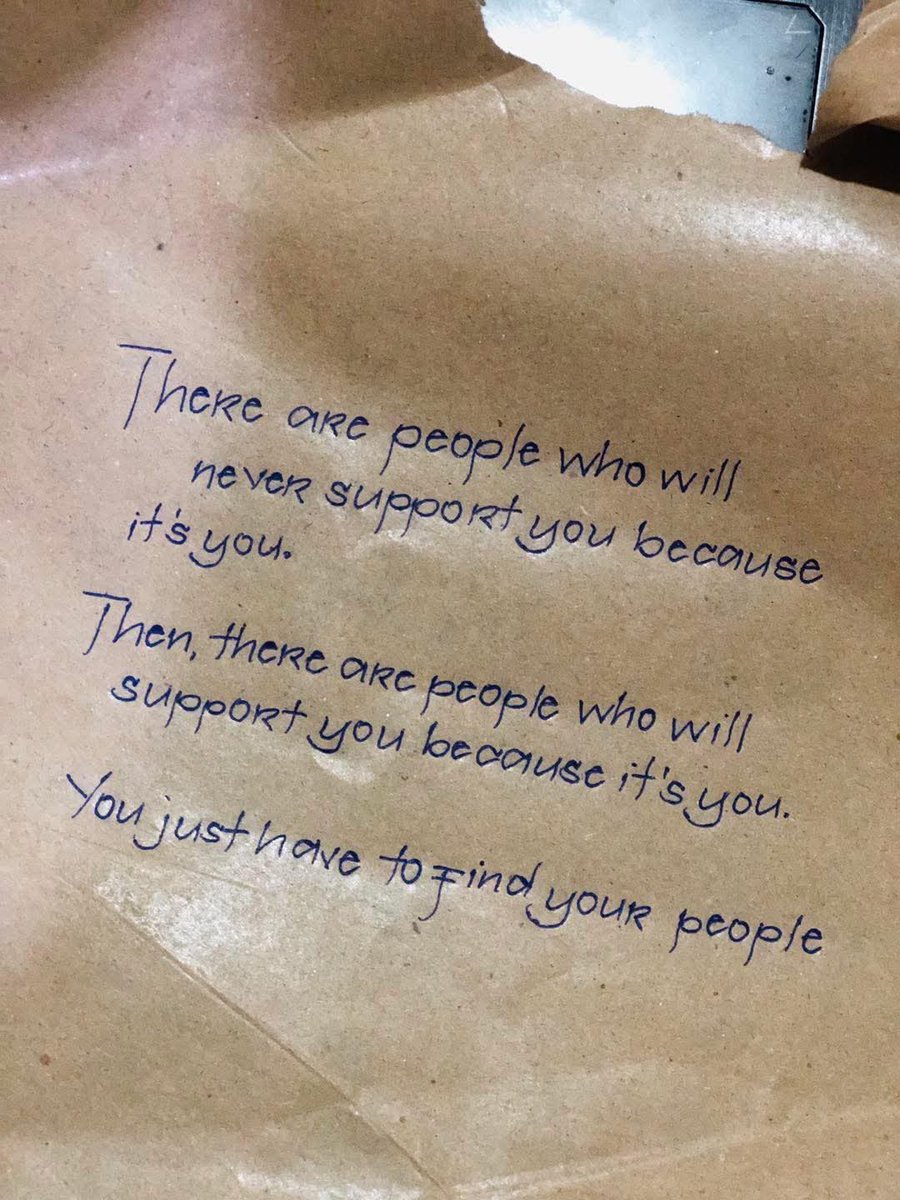 There are people who will
never support you because
it's you.
Then, there are people who will
support you because it's you.
You just have to find your people